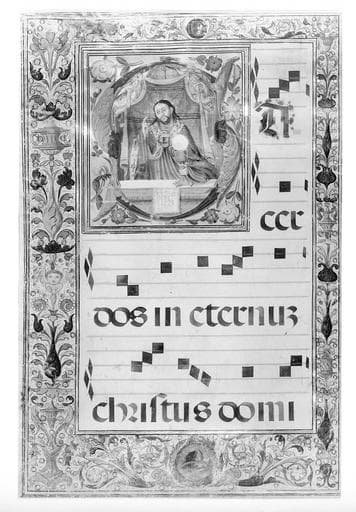 SA
cer
dos in eternuz
chriſtus domi